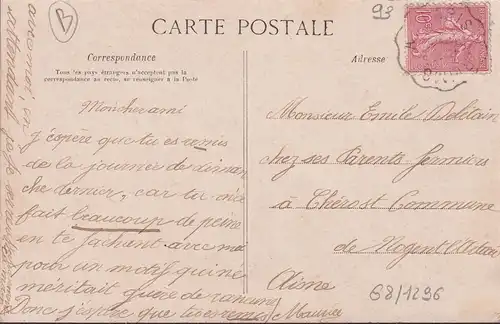 B
93
CARTE POSTALE
Correspondance
Tous les pays étrangers n'acceptent pas la
correspondance au recto, se renseigner à la Poste
Adresse
10c
Mon cher ami
J'espère que tu es remis
de la journée de diman
che dernier, car tu m'as
fait beaucoup de peine
en te fachant avec moi
pour un motif qui ne
méritait guère de rancune
Donc j'espère que tu es remis
avec moi, en
attendant
Maurice
Monsieur Emile
chez ses Parents fermiers
à Chérost Commune
de Nogent l'Artaud
Aisne
68/1296